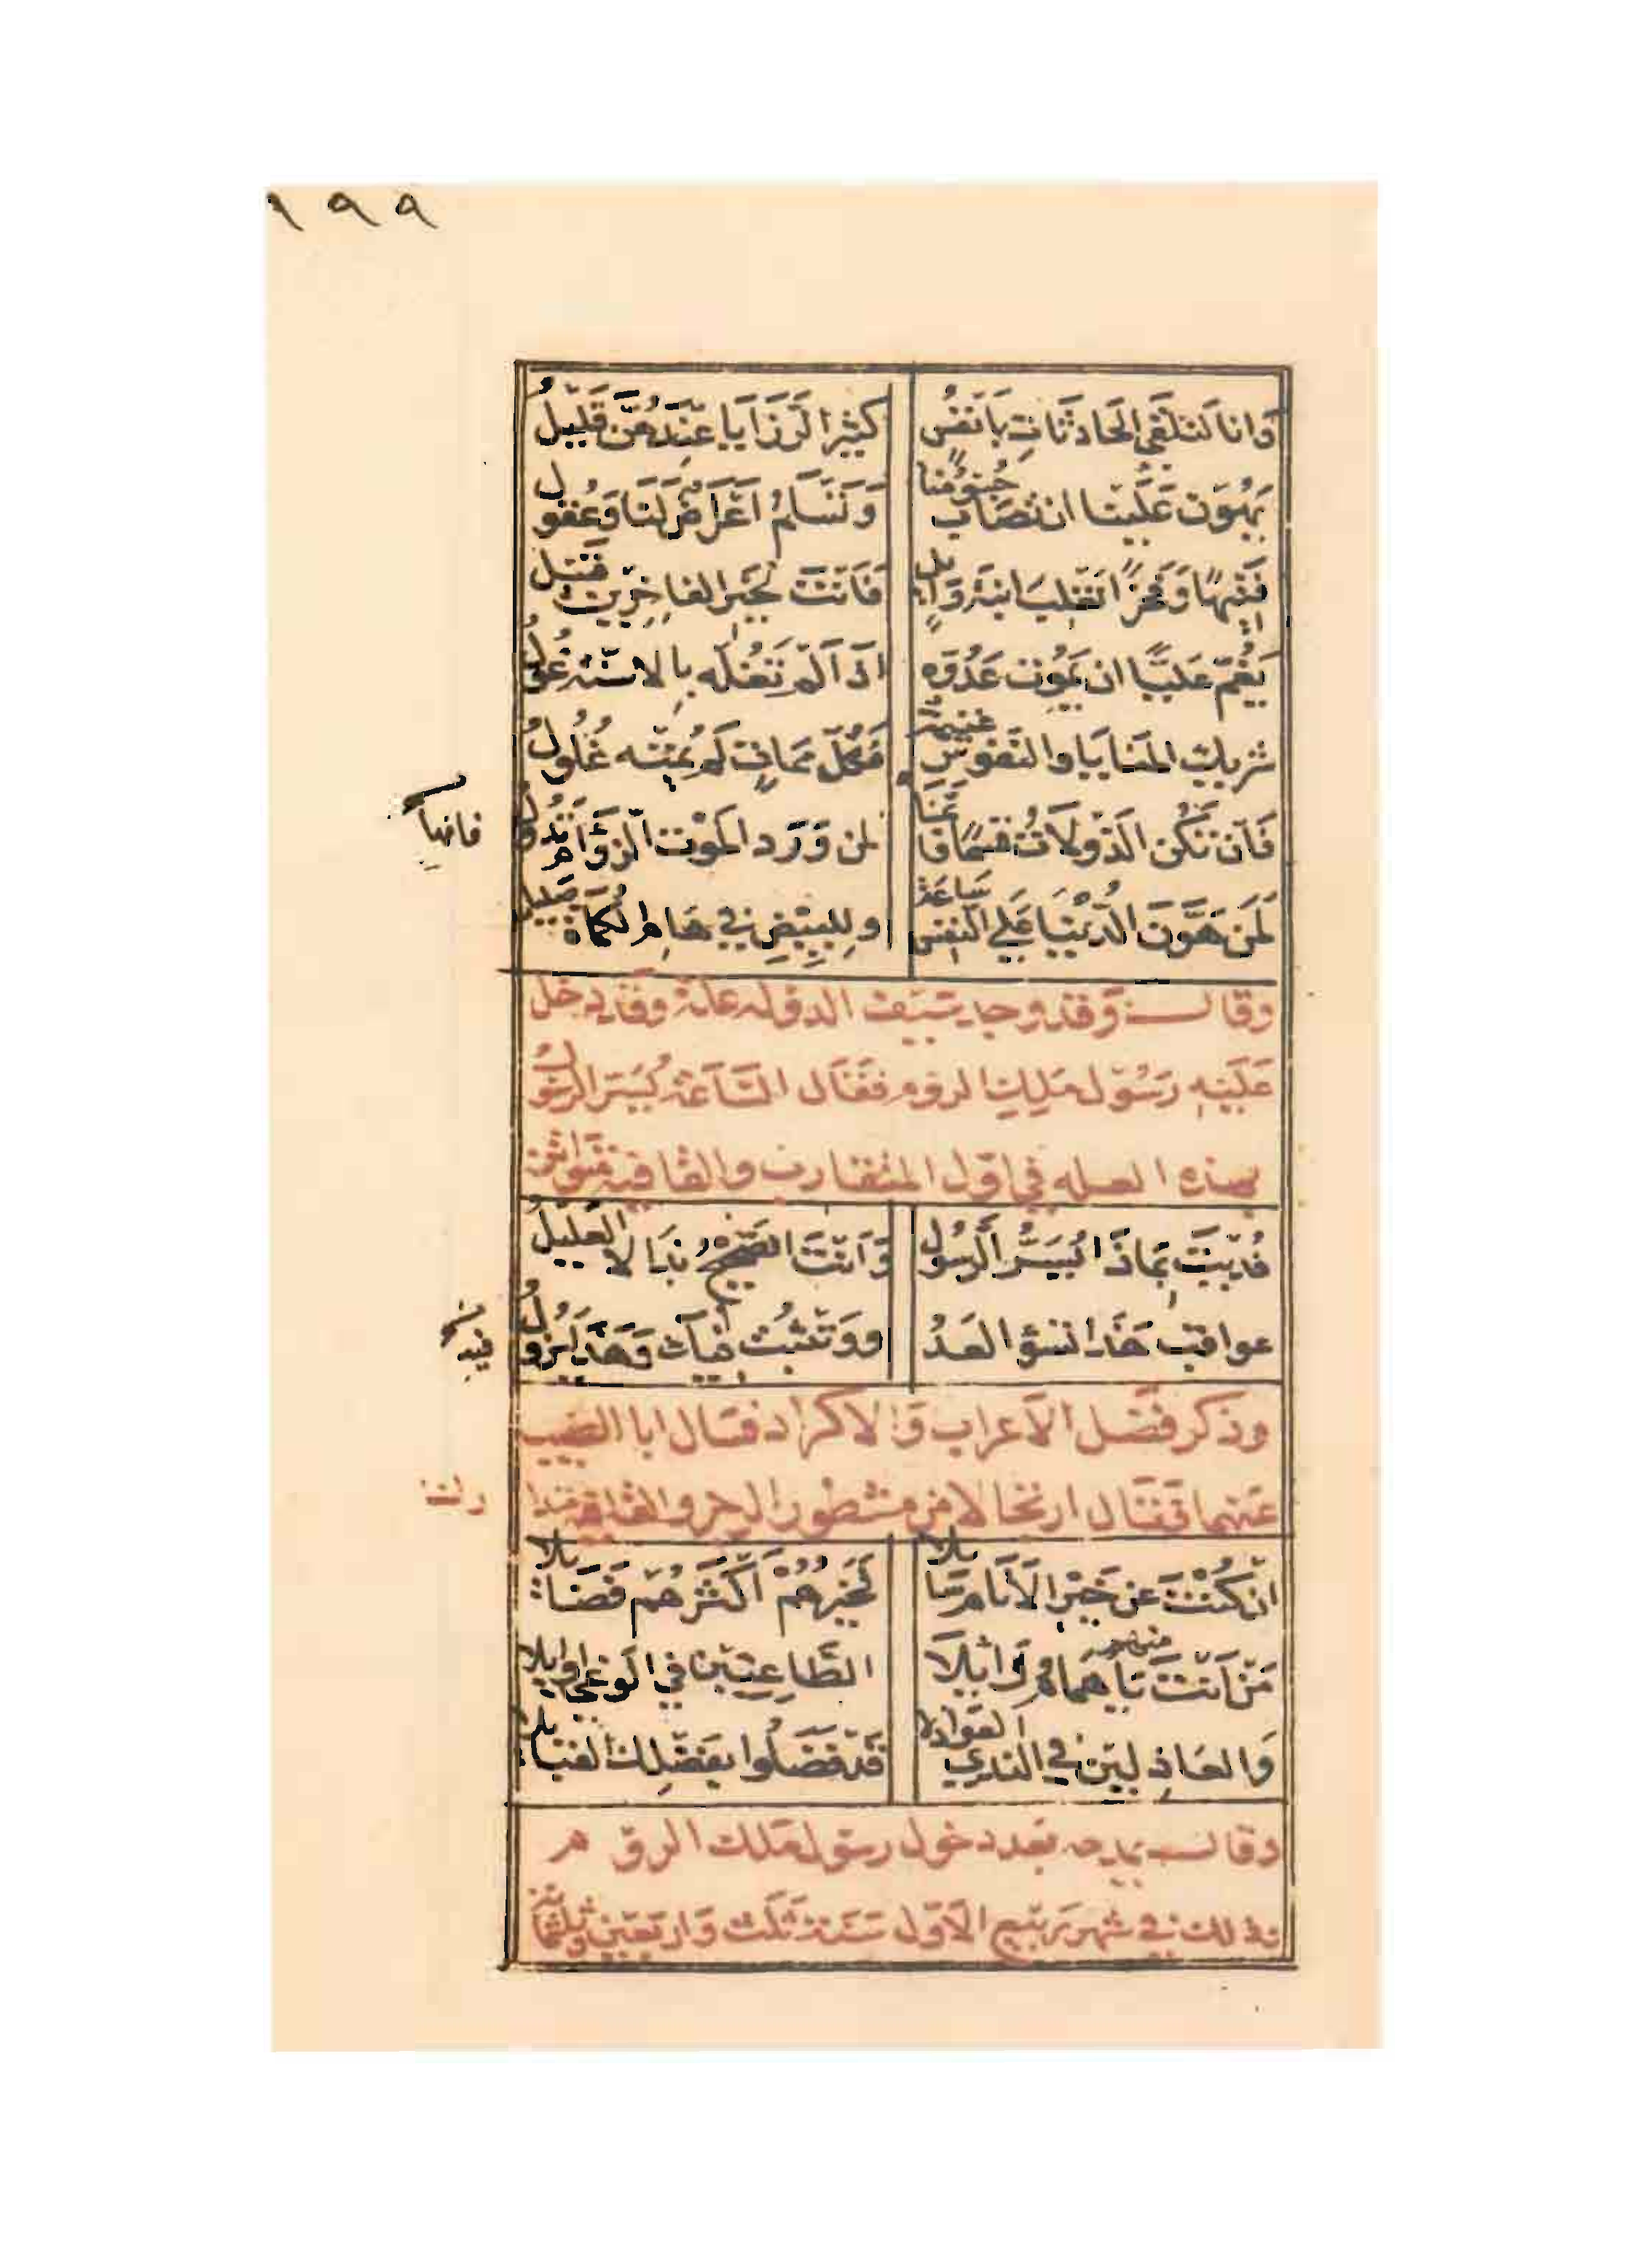 ١٩٩
وَانا لنلقى الحَادثات بانفُس كثير الرزَايا عندهُنّ قليلُ
يَهُون عَلينا ان تصَاب جُسُومُنا وَتسَلمُ اعرَاض لنا وَعُقول
فتيهًا وَفخرًا تغلب ابنة وَايل فَانت لخير الفاخِرين قبيل
يَغُمّ عَليًّا ان يَموُت عَدُوّه اذا لم تغُله بالاسنّة غُول
شريك المنايا والنفوس غنيمة فكلّ مَماتٍ لم يُمتهُ غُلُول
فَان تكن الدّولاتُ قسمًا فانما لمن وَرَد الموْت الزؤام تدُول
فانها
لمن هَوّن الدّنيا على النفس سَاعة وللبيض في هَام الكماة صَليل
وقالــ وَقد وجد سَيف الدوله علة وقد دخل
عَليه رَسُول مَلِك الروم فقال السَّاعة يُسَر الرسُول
بهذه العله في اوّل المتقارب والقافية متواتر
فُديتَ بماذَا يُسَرُّ الرسُول وَانتَ الصّحيحُ بذا لا العليلُ
عواقب هَذا تسؤ العَدُ ووَتثبُت فيك وَهَذا يَزُول
فيه
وذكر فضل الاعراب وَالاكراد فسَال ابا الطيب
عَنهما فقال ارتجالا من مشطور الرجز والقافية
ان كُنتَ عن خيْر الانَام سَايلا فخيرُهُمْ اكثرُهُم فضَايلا
مَن انتَ منهم يَا همَام وَايلا الطَّاعِنين في الوغى اوايلا
وَالعَاذلين في الندى العَواذلا قد فضَلُوا بفَضلِك القبايلا
وقالــ يمدحه بَعد دخول رسول مَلك الروم
وذلك في شهر رَبيع الاوّل سَنة ثلث وَاربَعين وثلثماية